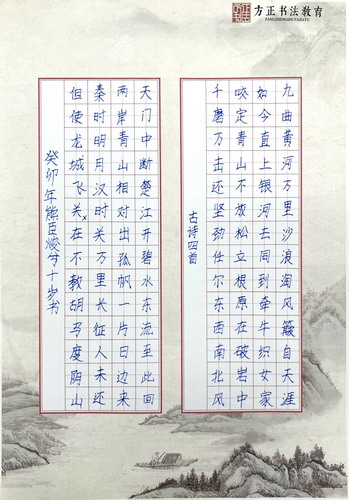 方正书法教育
FANGZHENGSHUFAJIAOYU
九曲黄河万里沙浪淘风簸自天涯
如今直上银河去同到牵牛织女家
咬定青山不放松立根原在破岩中
千磨万击还坚劲任尔东西南北风
古诗四首
天门中断楚江开碧水东流至此回
两岸青山相对出孤帆一片日边来
秦时明月汉时关万里长征人未还
但使龙城飞关在不教胡马度阴山
癸卯年熊臣十岁书